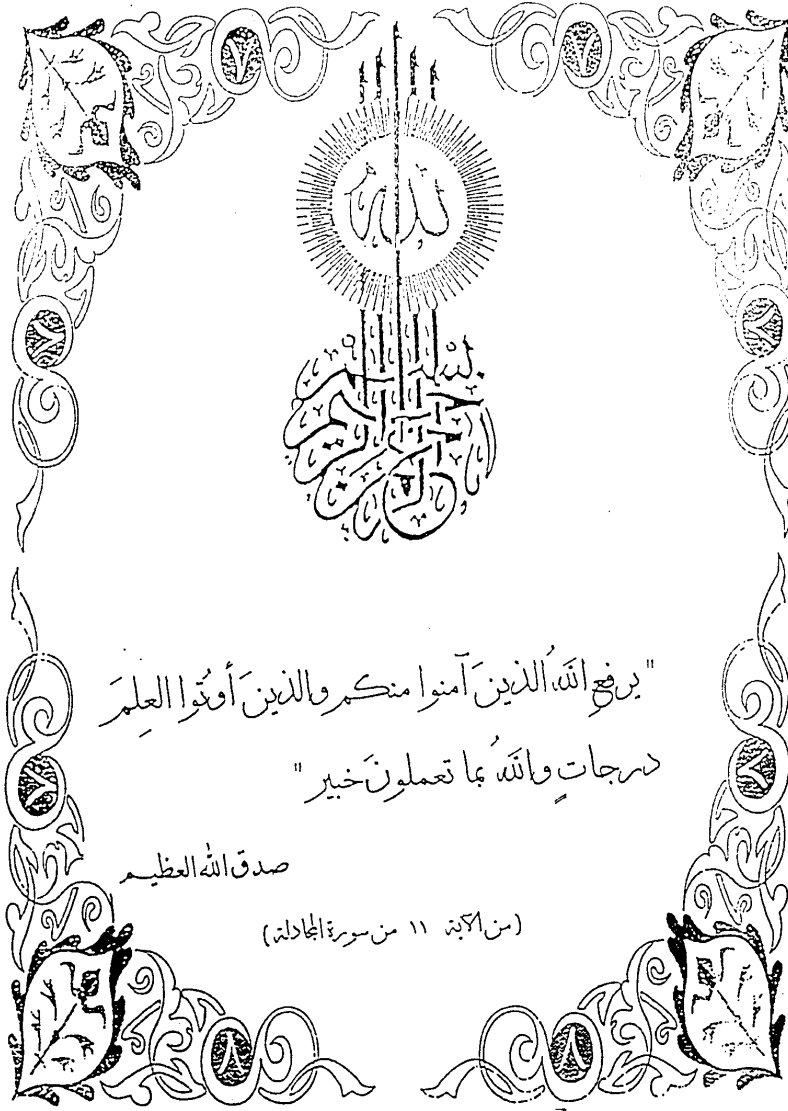 الله
بسم الله الرحمن الرحيم
"يرفعِ اللهُ الذينَ آمنوا منكم والذينَ أُوتُوا العِلمَ
درجاتٍ واللهُ بما تعملونَ خبير"
صدق الله العظيم
(من الآية ١١ من سورة المجادلة)